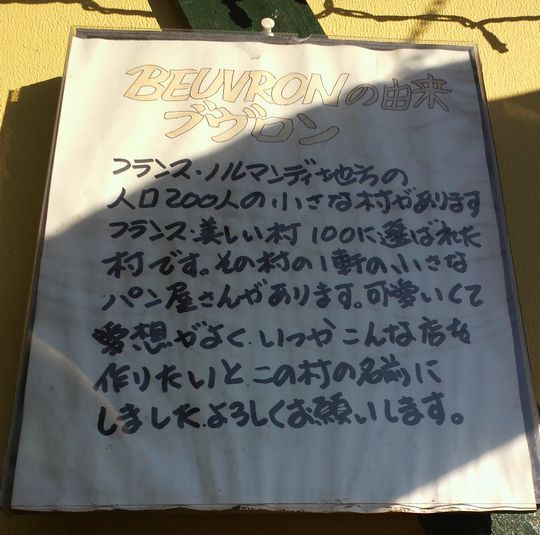 BEUVRONの由来
ブヴロン
フランス・ノルマンディ地方の
人口200人の小さな村があります
フランス・美しい村100に選ばれた
村です。その村の1軒の、小さな
パン屋さんがあります。可愛いくて
愛想がよく、いつかこんな店を
作りたいと、この村の名前に
しました。よろしくお願いします。